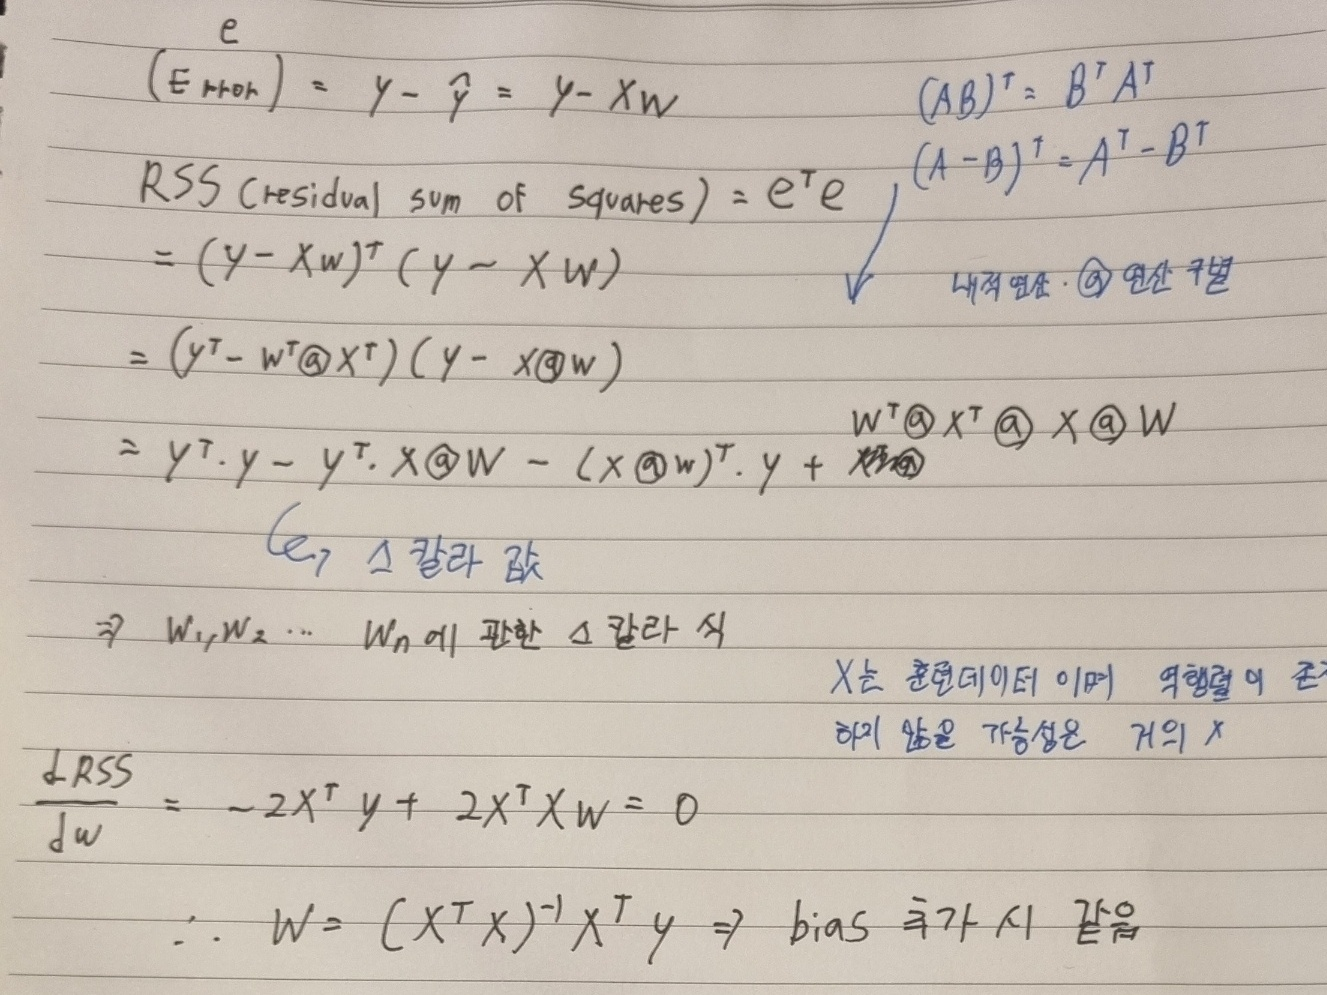 e
(Error) = y - ŷ = y - Xw
(AB)ᵀ = Bᵀ Aᵀ
(A - B)ᵀ = Aᵀ - Bᵀ
RSS (residual sum of squares) = eᵀe
= (y - Xw)ᵀ (y - Xw)
내적 연산 · @ 연산 구별
= (yᵀ - wᵀ@Xᵀ) (y - X@w)
wᵀ@Xᵀ@X@W
= yᵀ·y - yᵀ·X@W - (X@w)ᵀ·y +
스칼라 값
⇒ W₁, W₂ ... Wₙ에 관한 스칼라 식
X는 훈련데이터 이며 역행렬이 존
하지 않을 가능성은 거의 X
dRSS
/dw = -2Xᵀy + 2XᵀXw = 0
∴ W = (XᵀX)⁻¹Xᵀy ⇒ bias 추가 시 같음